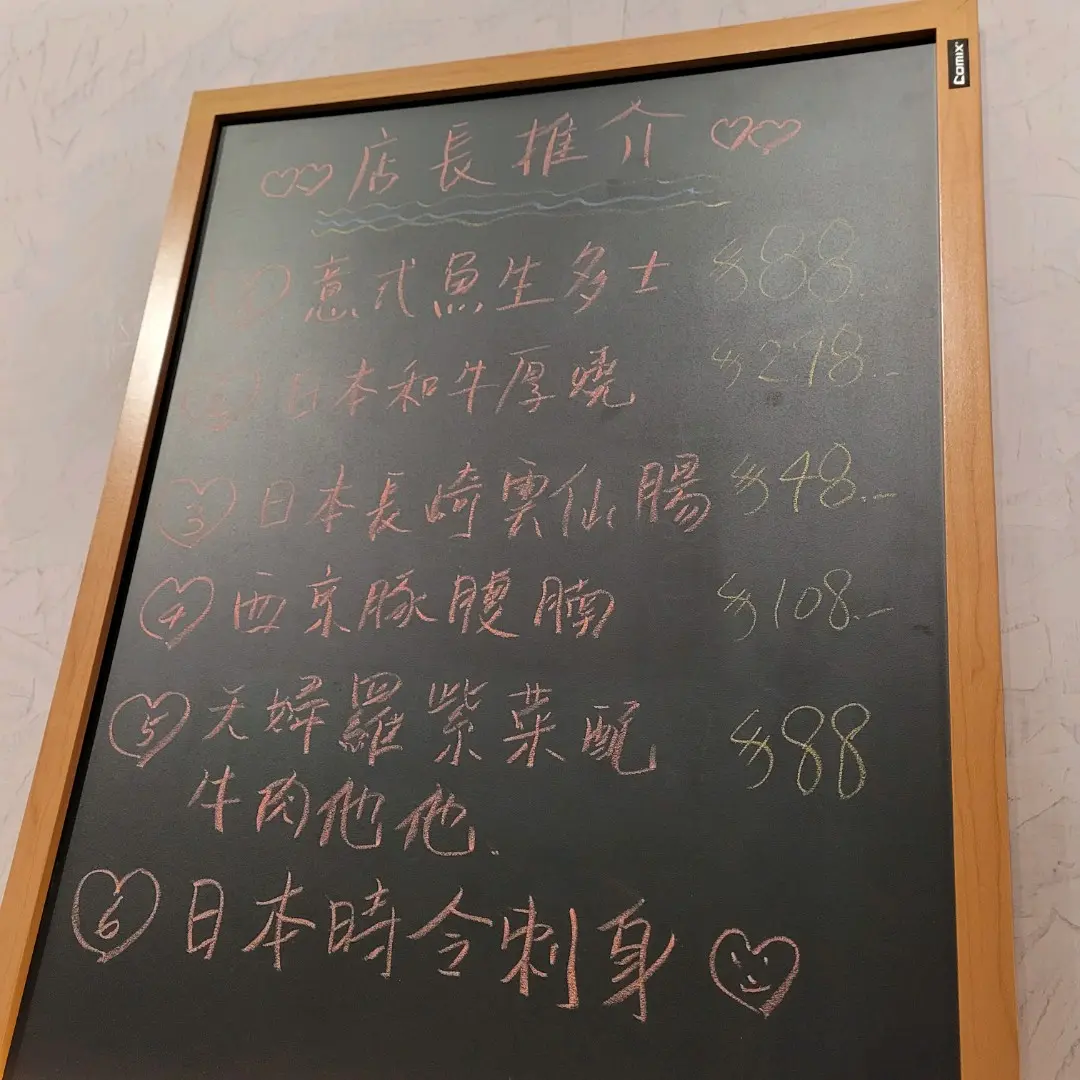 Comix
店長推介
意式魚生多士 $88
2 日本和牛厚燒 $278.--
3 日本長崎雲仙腸 $48.--
4 西京豚腰腩 $108.--
5 天婦羅紫菜配 $88
牛肉他他.
6 日本時令刺身